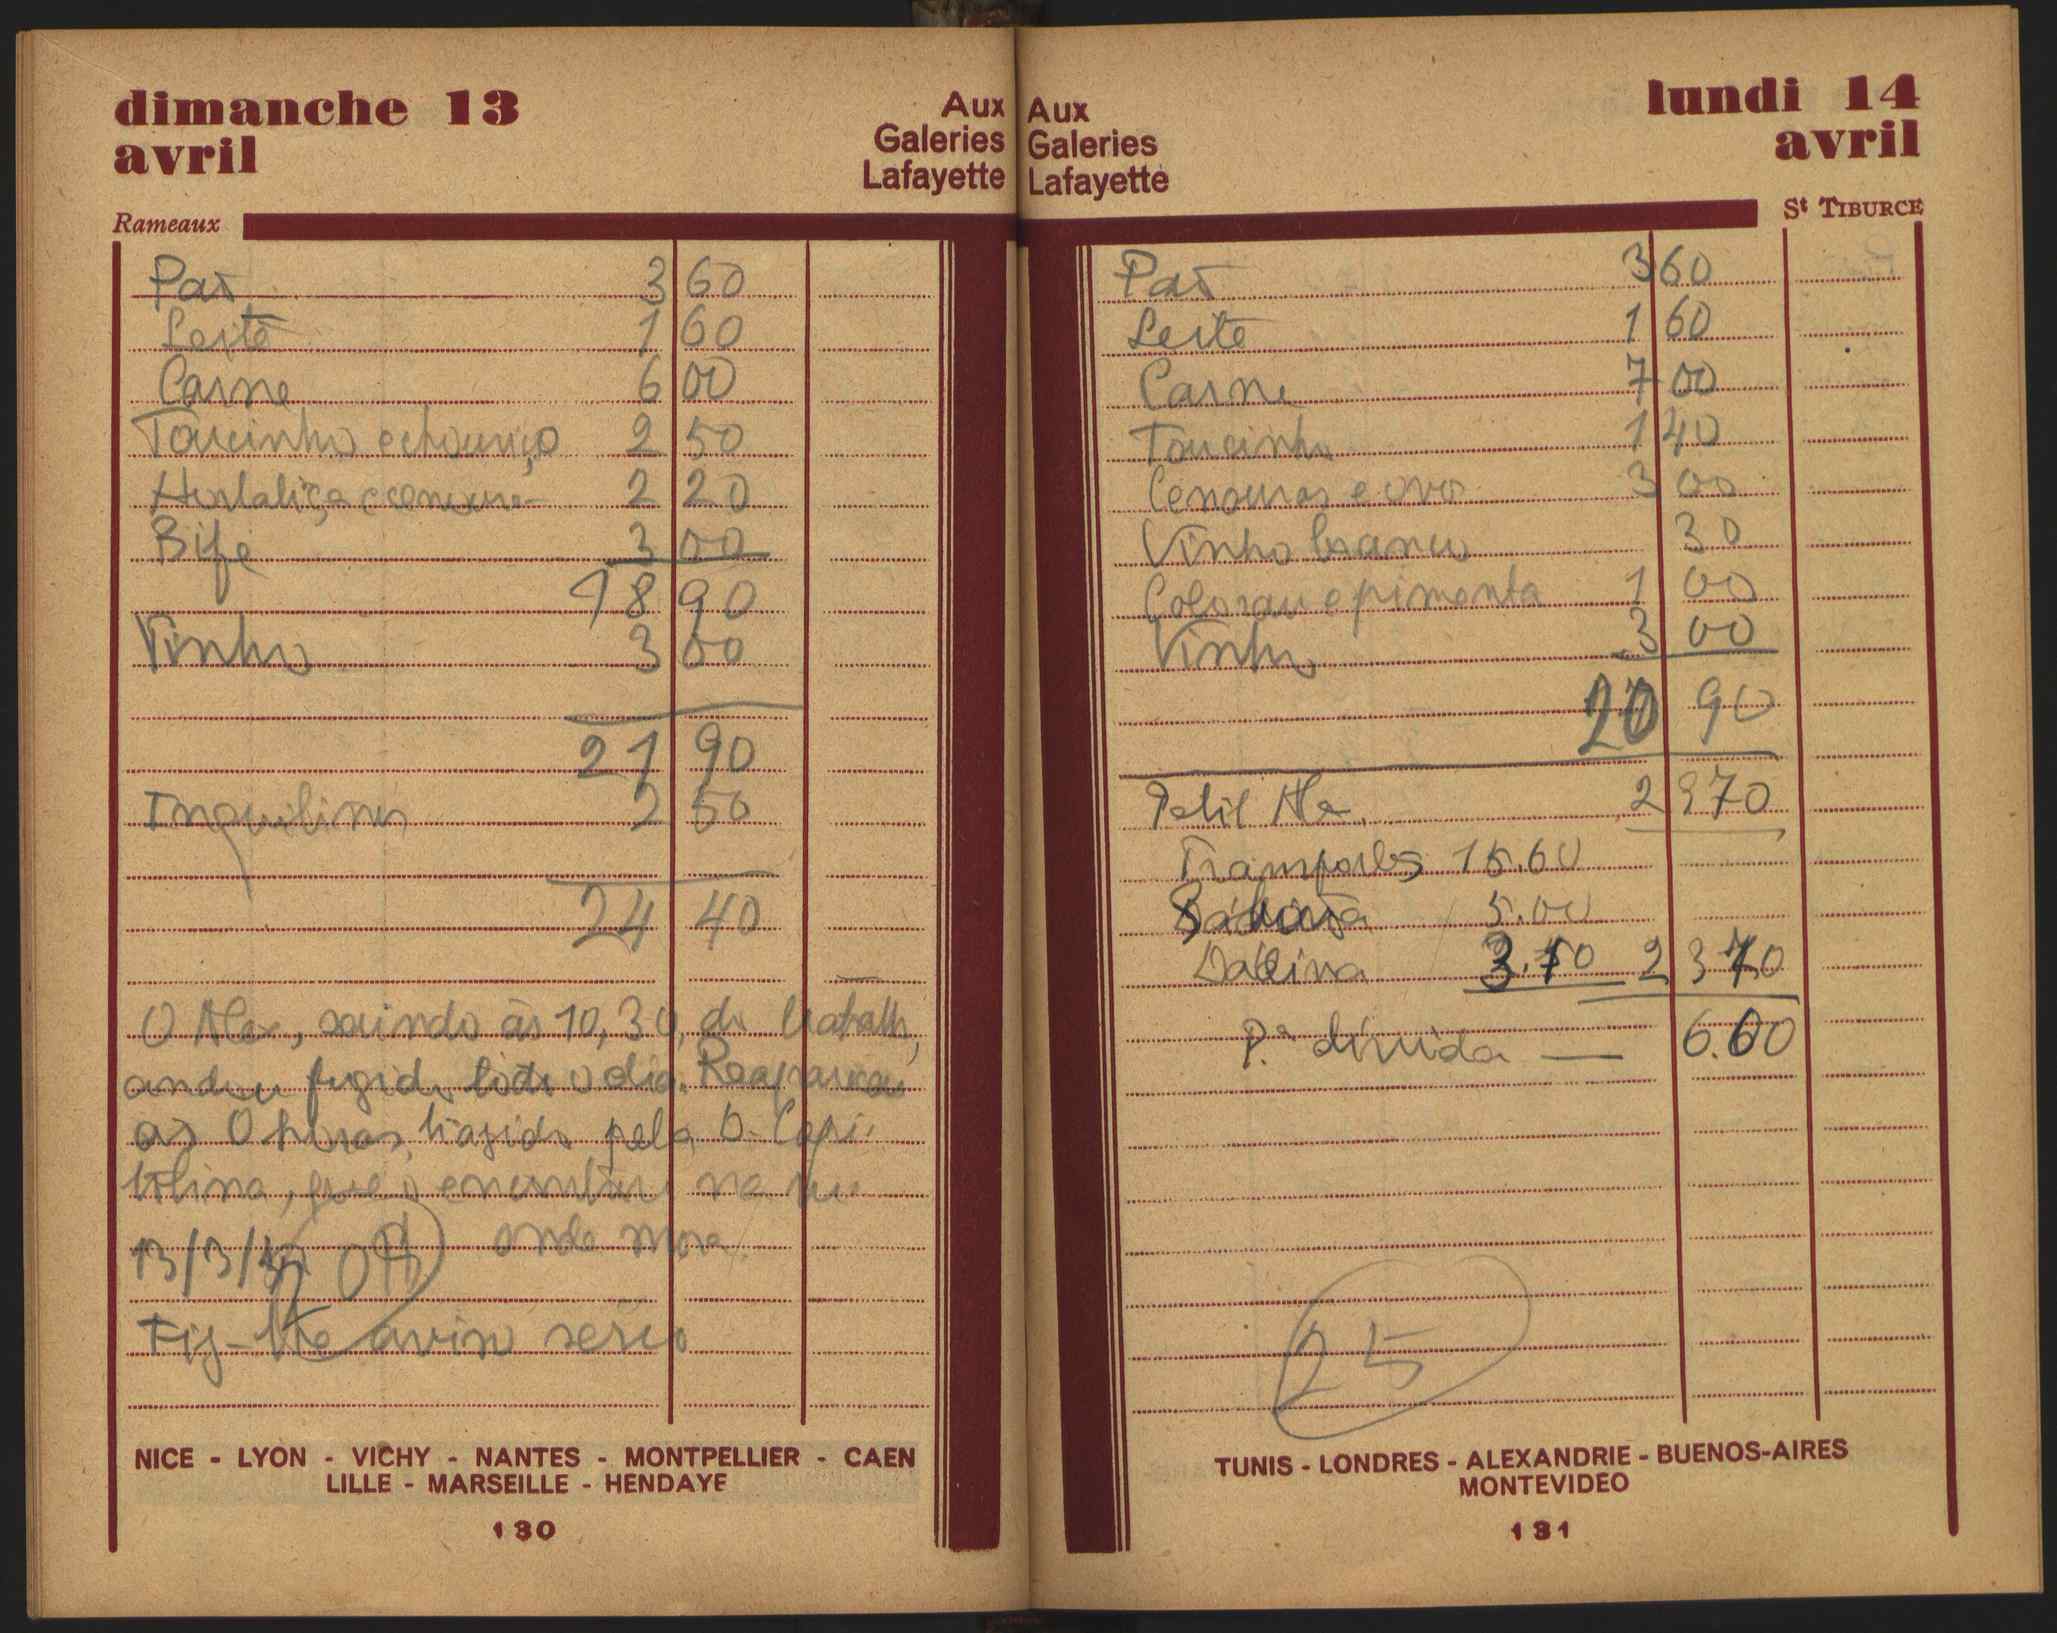 dimanche 13
avril
Aux
Galeries
Lafayette
Rameaux
Pão 3 60
Leite 1 60
Carne 6 00
Toucinho e chouriço 2 50
Hortaliça e cenoura 2 20
Bife 3 00
18 90
Vinho 3 00
21 90
Inquilinos 2 50
24 40
O Alex, saindo às 10,30, do trabalho,
andou fugido todo o dia. Reapareceu
às 0 horas, trazido pela D. Capi-
tolina, que o encontrou na rua
onde mora.
13/3/
Fiz-lhe aviso sério
NICE - LYON - VICHY - NANTES - MONTPELLIER - CAEN
LILLE - MARSEILLE - HENDAYE
130
Aux
Galeries
Lafayette
lundi 14
avril
St TIBURCE
Pão 3 60
Leite 1 60
Carne 7 00
Toucinho 1 40
Cenouras e ovo 3 00
Vinho branco 30
Colorau e pimenta 1 00
Vinho 3 00
20 90
Petil Ale 2 9 70
Transportes 15.60
5.00
3.10 2 3 70
P.ª dívida — 6.00
25
TUNIS - LONDRES - ALEXANDRIE - BUENOS-AIRES
MONTEVIDEO
131